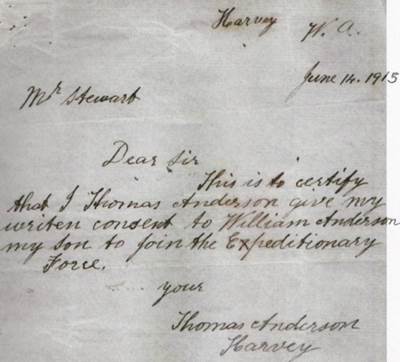 Harvey W. A.
June 14. 1915
Mr Stewart
Dear Sir
This is to certify
that I Thomas Anderson give my
writen consent to William Anderson
my son to join the Expeditionary
Force.
your
Thomas Anderson
Harvey